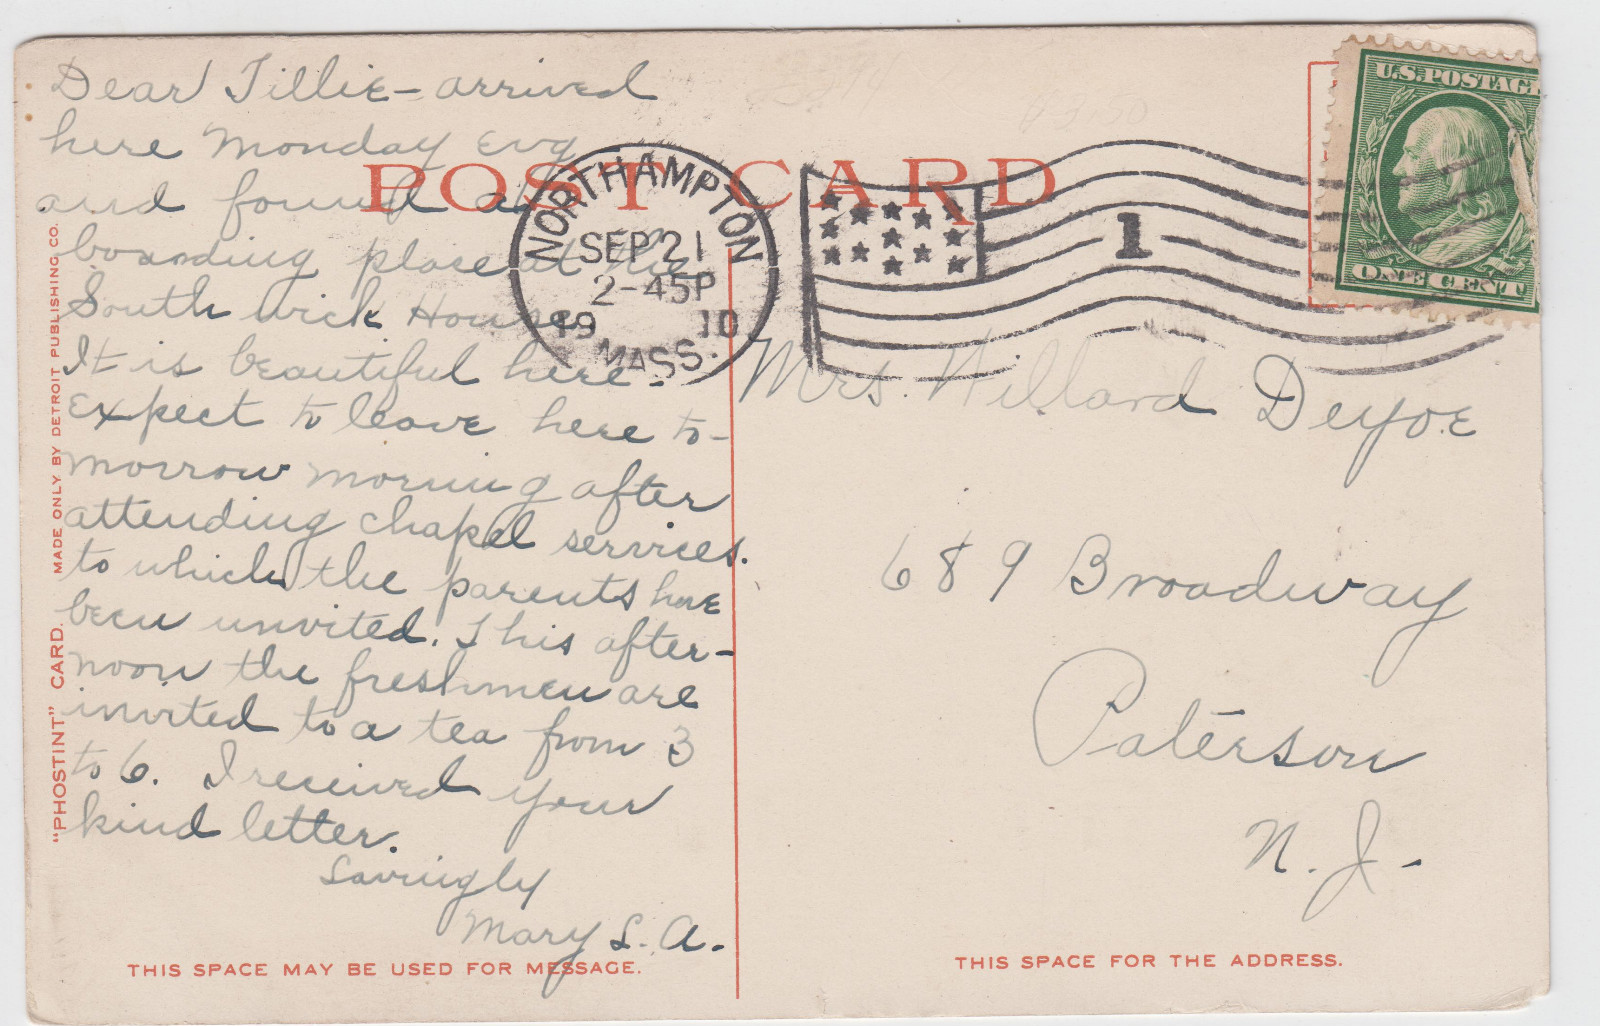 Dear Tillie - arrived
here Monday Evg
and found a
boarding place at the
South wick House.
It is beautiful here.
Expect to leave here to-
morrow morning after
attending chapel services.
to which the parents have
been unvited. This after-
noon the freshmen are
invited to a tea from 3
to 6. I received your
kind letter.
Lovingly
Mary L. A.
THIS SPACE MAY BE USED FOR MESSAGE.
"PHOSTINT" CARD. MADE ONLY BY DETROIT PUBLISHING CO.
POST CARD
NORTHAMPTON
SEP 21
2-45P
19 10
MASS.
1
U.S. POSTAGE
ONE CENT
Mrs. Willard Deyoe
689 Broadway
Paterson
N. J.
THIS SPACE FOR THE ADDRESS.